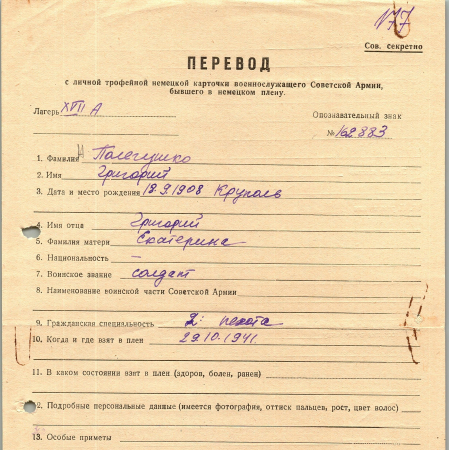 177
Сов. секретно
ПЕРЕВОД
с личной трофейной немецкой карточки военнослужащего Советской Армии,
бывшего в немецком плену.
Лагерь XVII А
Опознавательный знак
№ 162883
1. Фамилия Полегушко
2. Имя Григорий
3. Дата и место рождения 18.9.1908 Круполь
4. Имя отца Григорий
5. Фамилия матери Екатерина
6. Национальность —
7. Воинское звание солдат
8. Наименование воинской части Советской Армии
9. Гражданская специальность 2: пехота
10. Когда и где взят в плен 29.10.1941.
11. В каком состоянии взят в плен (здоров, болен, ранен)
2. Подробные персональные данные (имеется фотография, оттиск пальцев, рост, цвет волос)
13. Особые приметы